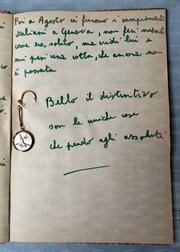 Poi a Agosto vi furono i campionati
italiani a Genova, non feci niente
come era solito, ma vidi lui e
mi persi una cotta, che ancora non
è passata
Bello il distintivo
son le uniche cose
che prendo agli assoluti